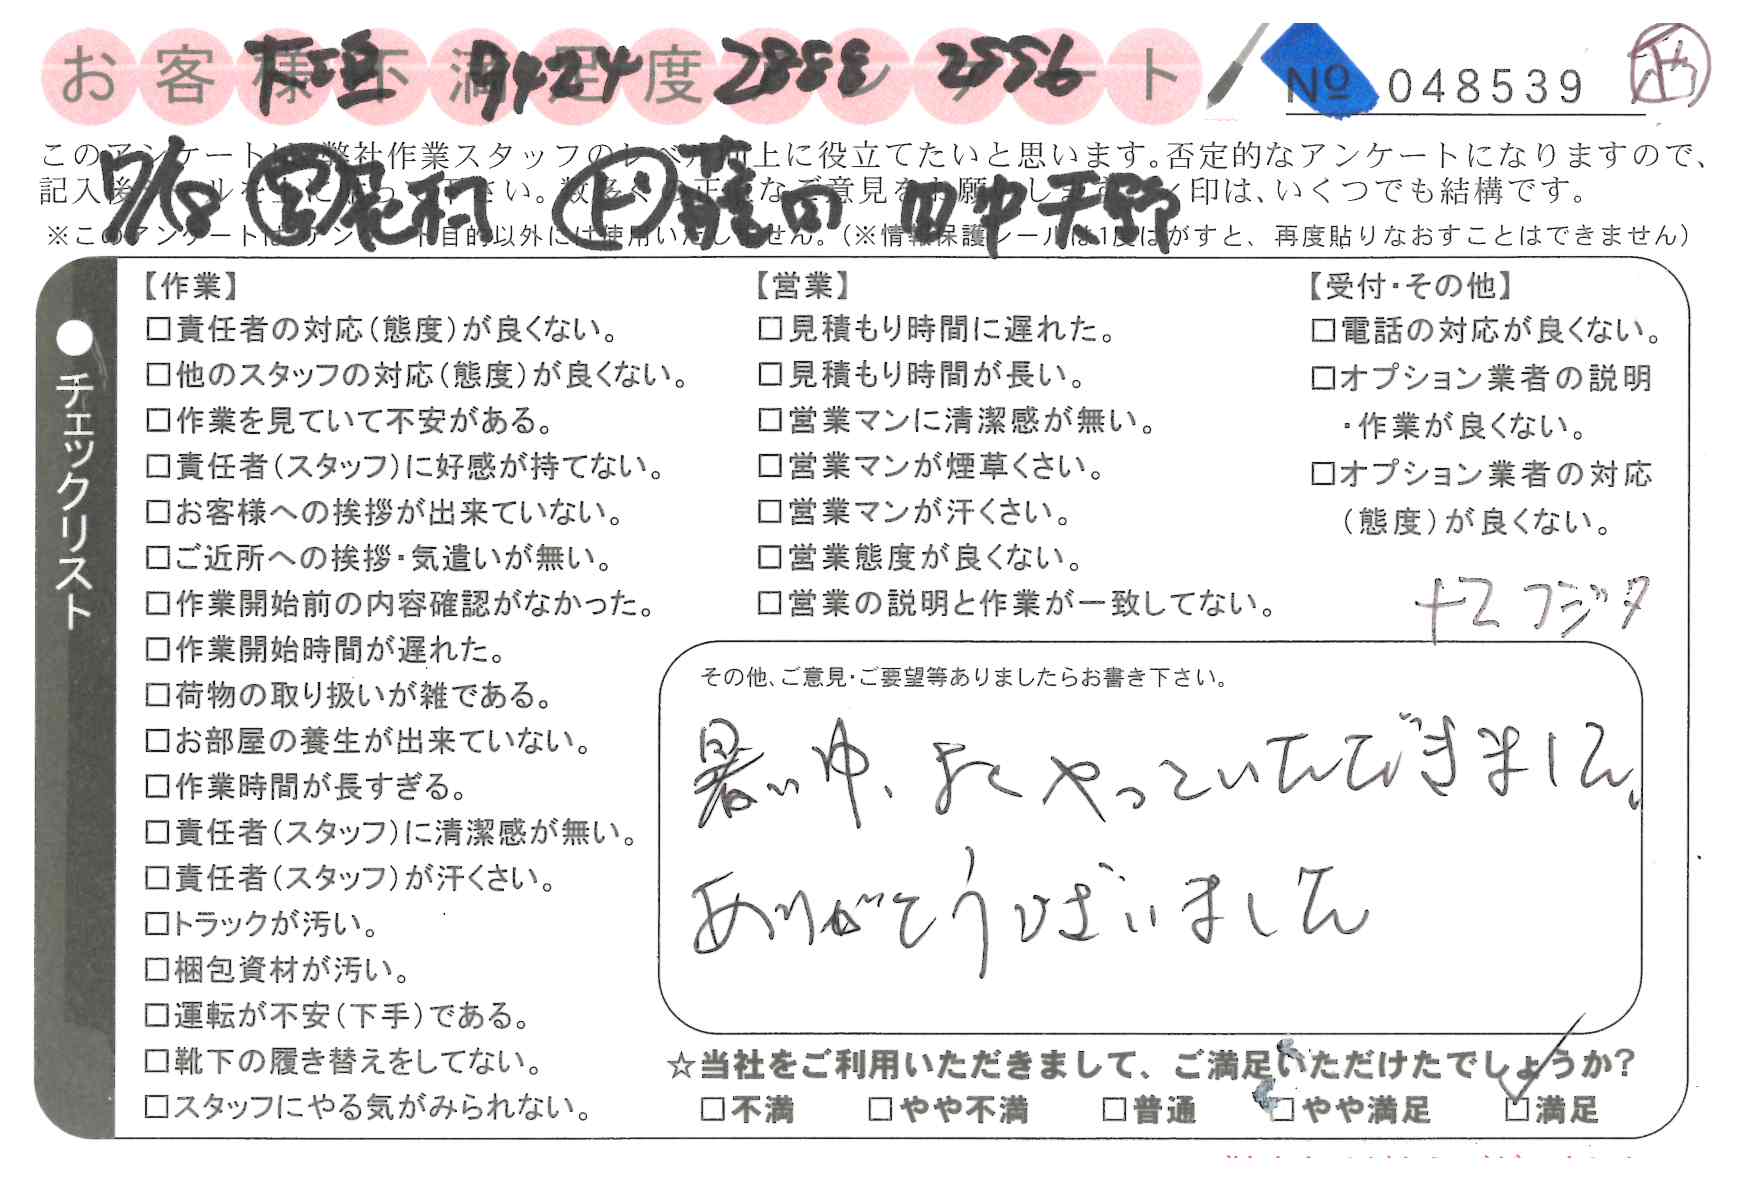 お客様不満足度アンケート
9424 2888 2556
№ 048539
このアンケートは、弊社作業スタッフのレベル向上に役立てたいと思います。否定的なアンケートになりますので、
記入後シールを上に貼って下さい。数多くの正直なご意見をお願いします。✓印は、いくつでも結構です。
※このアンケートはアンケート目的以外には使用いたしません。（※情報保護シールは1度はがすと、再度貼りなおすことはできません）
7/18 花村 藤田 田中 天野
●チェックリスト
【作業】
□責任者の対応（態度）が良くない。
□他のスタッフの対応（態度）が良くない。
□作業を見ていて不安がある。
□責任者（スタッフ）に好感が持てない。
□お客様への挨拶が出来ていない。
□ご近所への挨拶・気遣いが無い。
□作業開始前の内容確認がなかった。
□作業開始時間が遅れた。
□荷物の取り扱いが雑である。
□お部屋の養生が出来ていない。
□作業時間が長すぎる。
□責任者（スタッフ）に清潔感が無い。
□責任者（スタッフ）が汗くさい。
□トラックが汚い。
□梱包資材が汚い。
□運転が不安（下手）である。
□靴下の履き替えをしてない。
□スタッフにやる気がみられない。
【営業】
□見積もり時間に遅れた。
□見積もり時間が長い。
□営業マンに清潔感が無い。
□営業マンが煙草くさい。
□営業マンが汗くさい。
□営業態度が良くない。
□営業の説明と作業が一致してない。
【受付・その他】
□電話の対応が良くない。
□オプション業者の説明
・作業が良くない。
□オプション業者の対応
（態度）が良くない。
フジタ
その他、ご意見・ご要望等ありましたらお書き下さい。
暑い中、よくやっていただきました。
ありがとうございました
☆当社をご利用いただきまして、ご満足いただけたでしょうか?
□不満 □やや不満 □普通 □やや満足 ☑満足